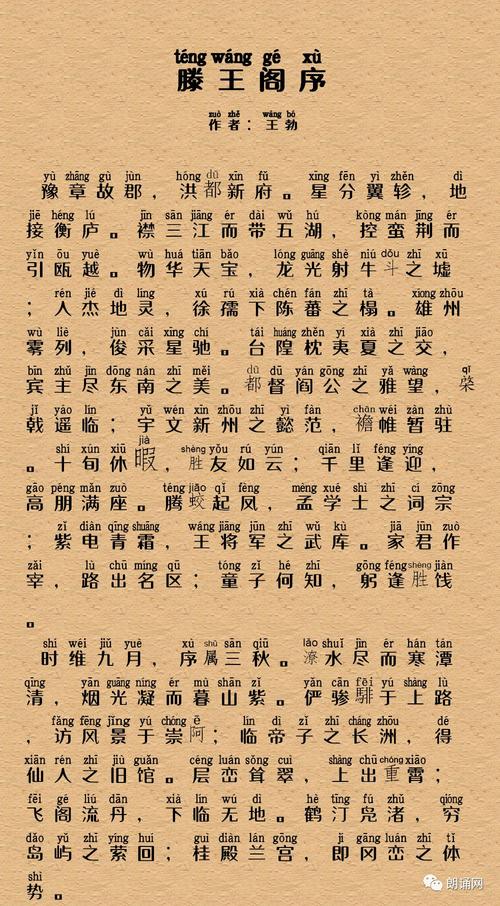 téng wáng gé xù
滕王阁序
zuò zhě wáng bó
作者：王勃
yù zhāng gù jùn hóng dū xīn fǔ xīng fēn yì zhěn dì
豫章故郡，洪都新府。星分翼轸，地
jiē héng lú jīn sān jiāng ér dài wǔ hú kòng mán jīng ér
接衡庐。襟三江而带五湖，控蛮荆而
yǐn ōu yuè wù huá tiān bǎo lóng guāng shè niú dǒu zhī xū
引瓯越。物华天宝，龙光射牛斗之墟
rén jié dì líng xú rú xià chén fán zhī tà xióng zhōu
；人杰地灵，徐孺下陈蕃之榻。雄州
wù liè jùn cǎi xīng chí tái huáng zhěn yí xià zhī jiāo
雾列，俊采星驰。台隍枕夷夏之交，
bīn zhǔ jìn dōng nán zhī měi dū dū yán gōng zhī yǎ wàng qǐ
宾主尽东南之美。都督阎公之雅望，棨
jǐ yáo lín yǔ wén xīn zhōu zhī yì fàn chān wéi zàn zhù
戟遥临；宇文新州之懿范，襜帷暂驻
shí xún xiū jià shèng yǒu rú yún qiān lǐ féng yíng
。十旬休暇，胜友如云；千里逢迎，
gāo péng mǎn zuò téng jiāo qǐ fèng mèng xué shì zhī cí zōng
高朋满座。腾蛟起凤，孟学士之词宗
zǐ diàn qīng shuāng wáng jiāng jūn zhī wǔ kù jiā jūn zuò
；紫电青霜，王将军之武库。家君作
zǎi lù chū míng qū tóng zǐ hé zhī gōng féng shèng jiàn
宰，路出名区；童子何知，躬逢胜饯
。
shí wéi jiǔ yuè xù shǔ sān qiū lǎo shuǐ jìn ér hán tán
时维九月，序属三秋。潦水尽而寒潭
qīng yān guāng níng ér mù shān zǐ yǎn cān fēi yú shàng lù
清，烟光凝而暮山紫。俨骖騑于上路
fǎng fēng jǐng yú chóng ē lín dì zǐ zhī cháng zhōu dé
，访风景于崇阿；临帝子之长洲，得
xiān rén zhī jiù guǎn céng luán sǒng cuì shàng chū chóng xiāo
仙人之旧馆。层峦耸翠，上出重霄；
fēi gé liú dān xià lín wú dì hè tīng fú zhǔ qióng
飞阁流丹，下临无地。鹤汀凫渚，穷
dǎo yǔ zhī yíng huí guì diàn lán gōng jí gāng luán zhī tǐ
岛屿之萦回；桂殿兰宫，即冈峦之体
shì
势。
朗诵网